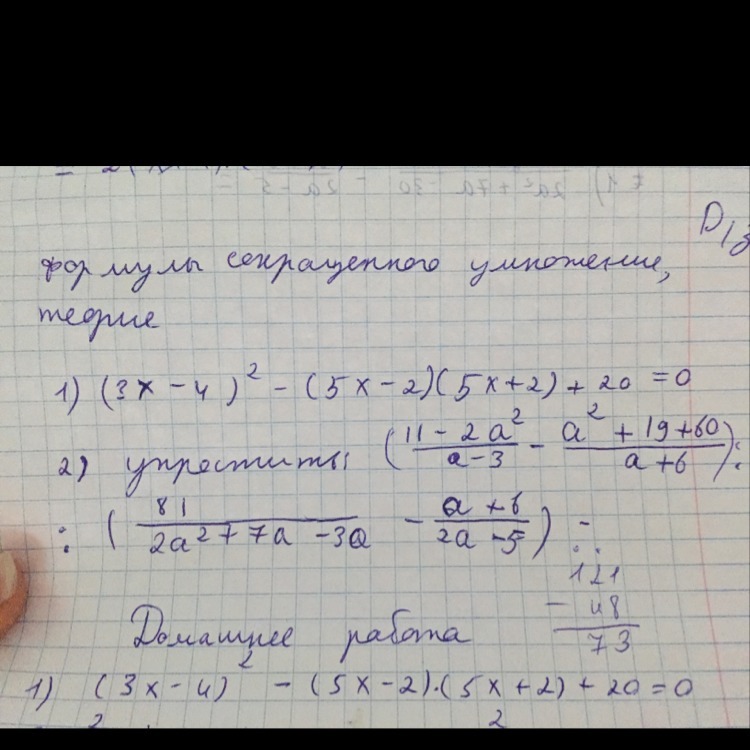 D/з
формулы сокращенного умножение,
теорие
1) (3x - 4)² - (5x - 2)(5x + 2) + 20 = 0
2) упростить ((11 - 2a²)/(a - 3) - (a² + 19 + 60)/(a + 6)) :
: (81/(2a² + 7a - 30) - (a + 6)/(2a - 5)) -
121
- 48
73
Домашнее работа
1) (3x - 4)² - (5x - 2)·(5x + 2) + 20 = 0